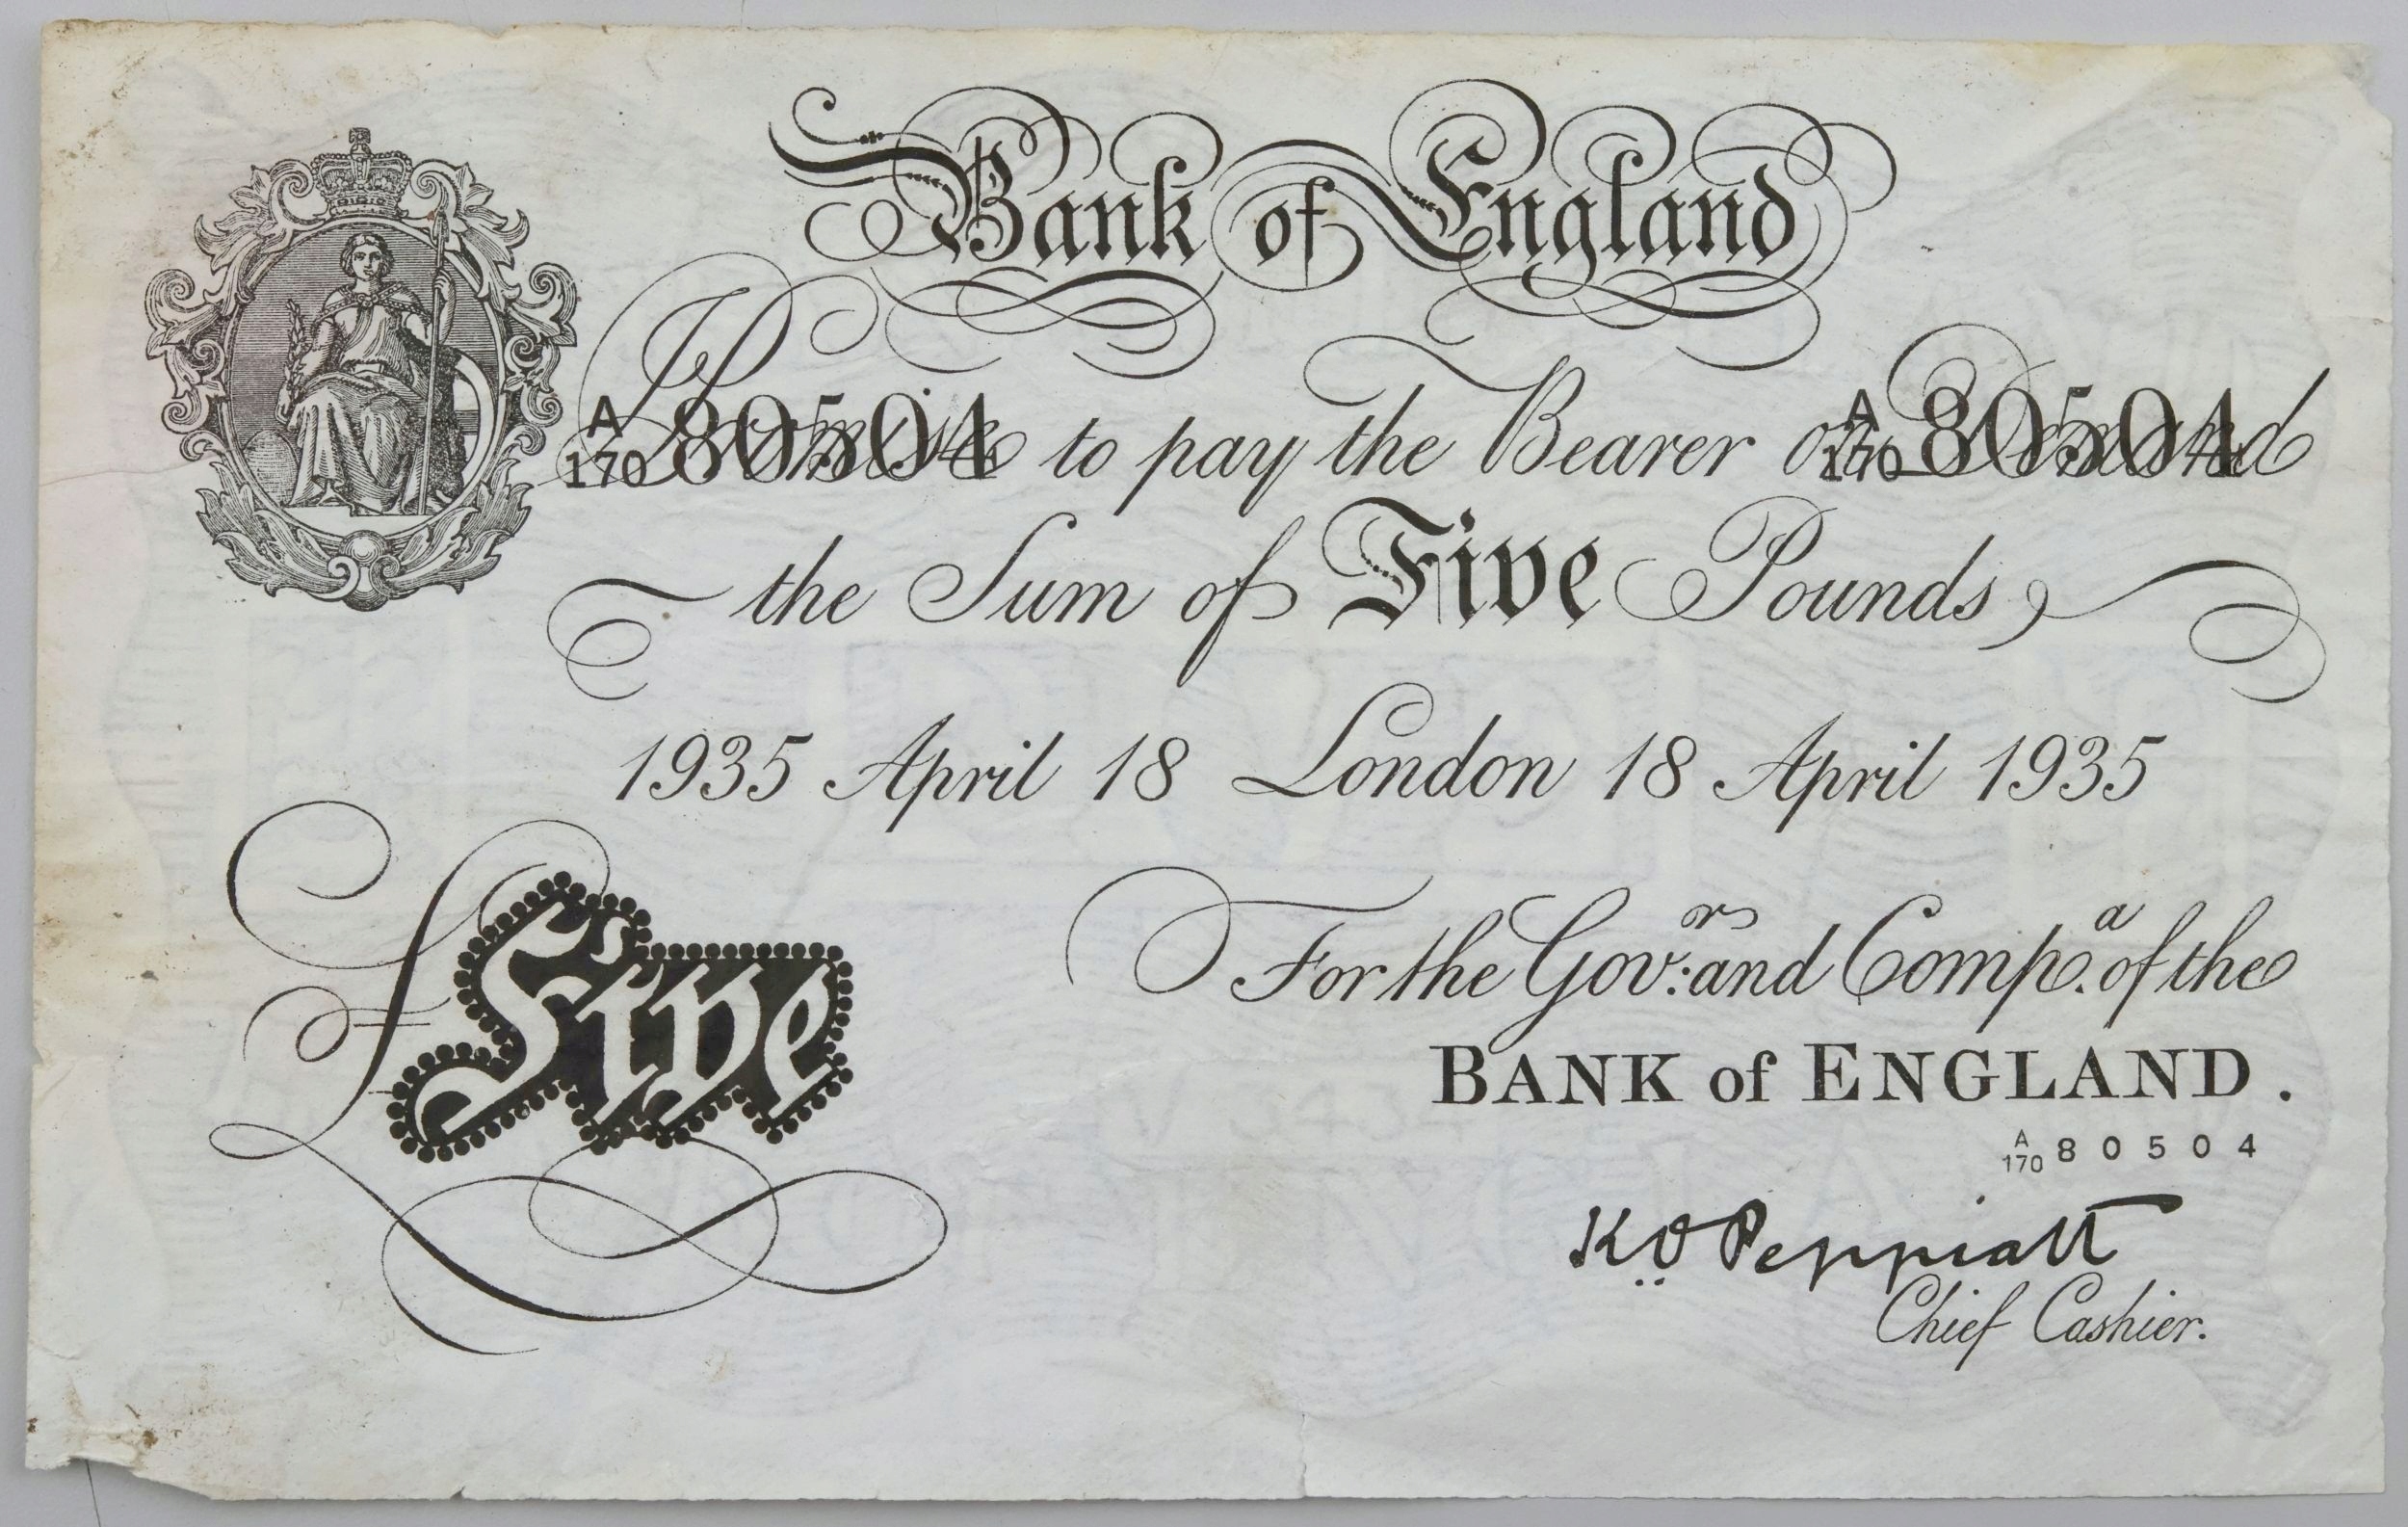 Bank of England
A 170 80504 I Promise to pay the Bearer on Demand A 170 80504
the Sum of Five Pounds
1935 April 18 London 18 April 1935
£Five
For the Gov:rs and Comp.a of the
BANK of ENGLAND.
A 170 80504
K O Peppiatt
Chief Cashier.